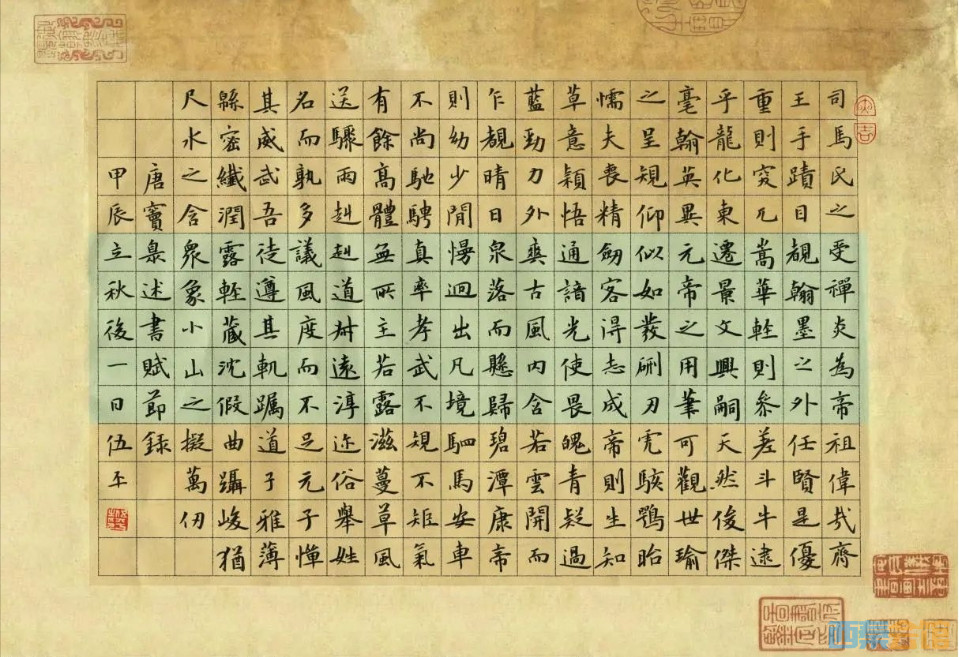 司馬氏之受禪炎為帝祖偉哉齊
王手蹟目覩翰墨之外任賢是優
重則突兀嵩華輕則參差斗牛逮
乎龍化東遷景文興嗣天然俊傑
毫翰英異元帝之用筆可觀世瑜
之呈規仰似如發硎刃虎駭鶚眙
懦夫喪精劒客得志成帝則生知
草意穎悟通諳光使畏魄青疑過
藍勁力外爽古風內含若雲開而
乍覩晴日泉落而懸歸碧潭康帝
則幼少閒慢迥出凡境駟馬安車
不尚馳騁真率孝武不規不矩氣
有餘高體無所主若露滋蔓草風
送驟雨赳赳道叔遠淳迩俗舉姓
名而孰多議風度而不足元子憚
其威武吾徒遵其軌躅道子雅薄
緜密纖潤露輕藏沈假曲躡峻猶
尺水之含眾象小山之擬萬仞
唐竇臮述書賦節錄
甲辰立秋後一日伍平